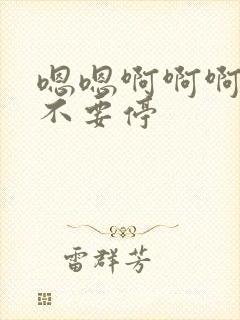 嗯嗯啊啊啊
不要停
雷群芳